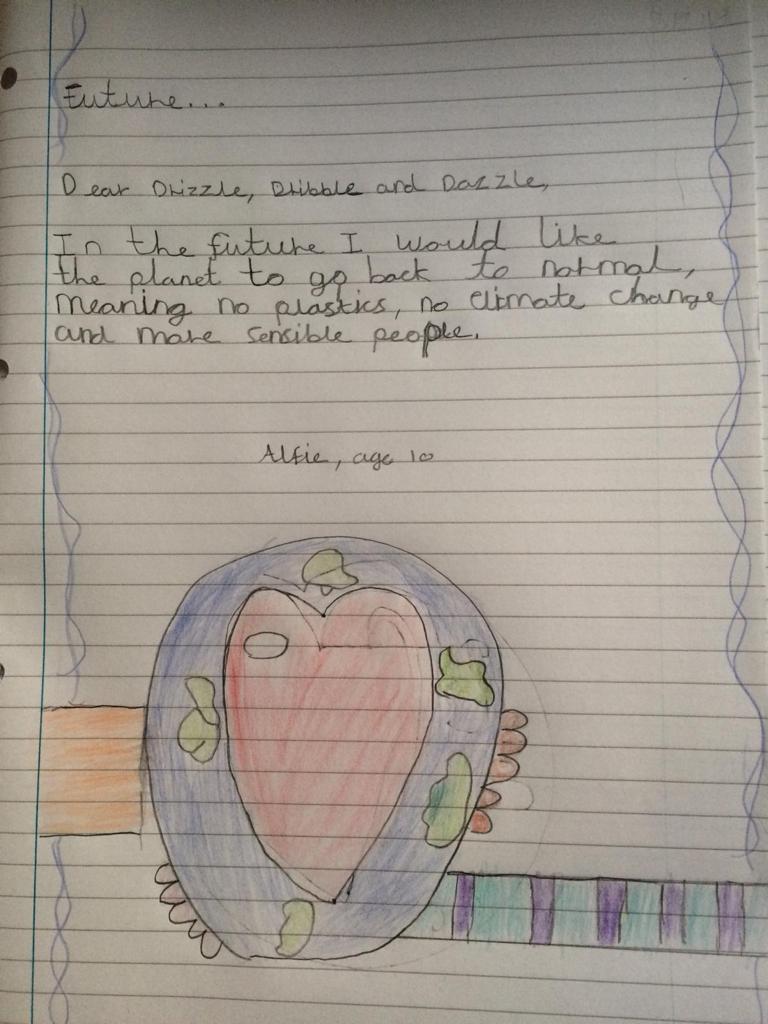 Future...
Dear Drizzle, Dribble and Dazzle,
In the future I would like
the planet to go back to normal,
meaning no plastics, no climate change
and more sensible people.
Alfie, age 10